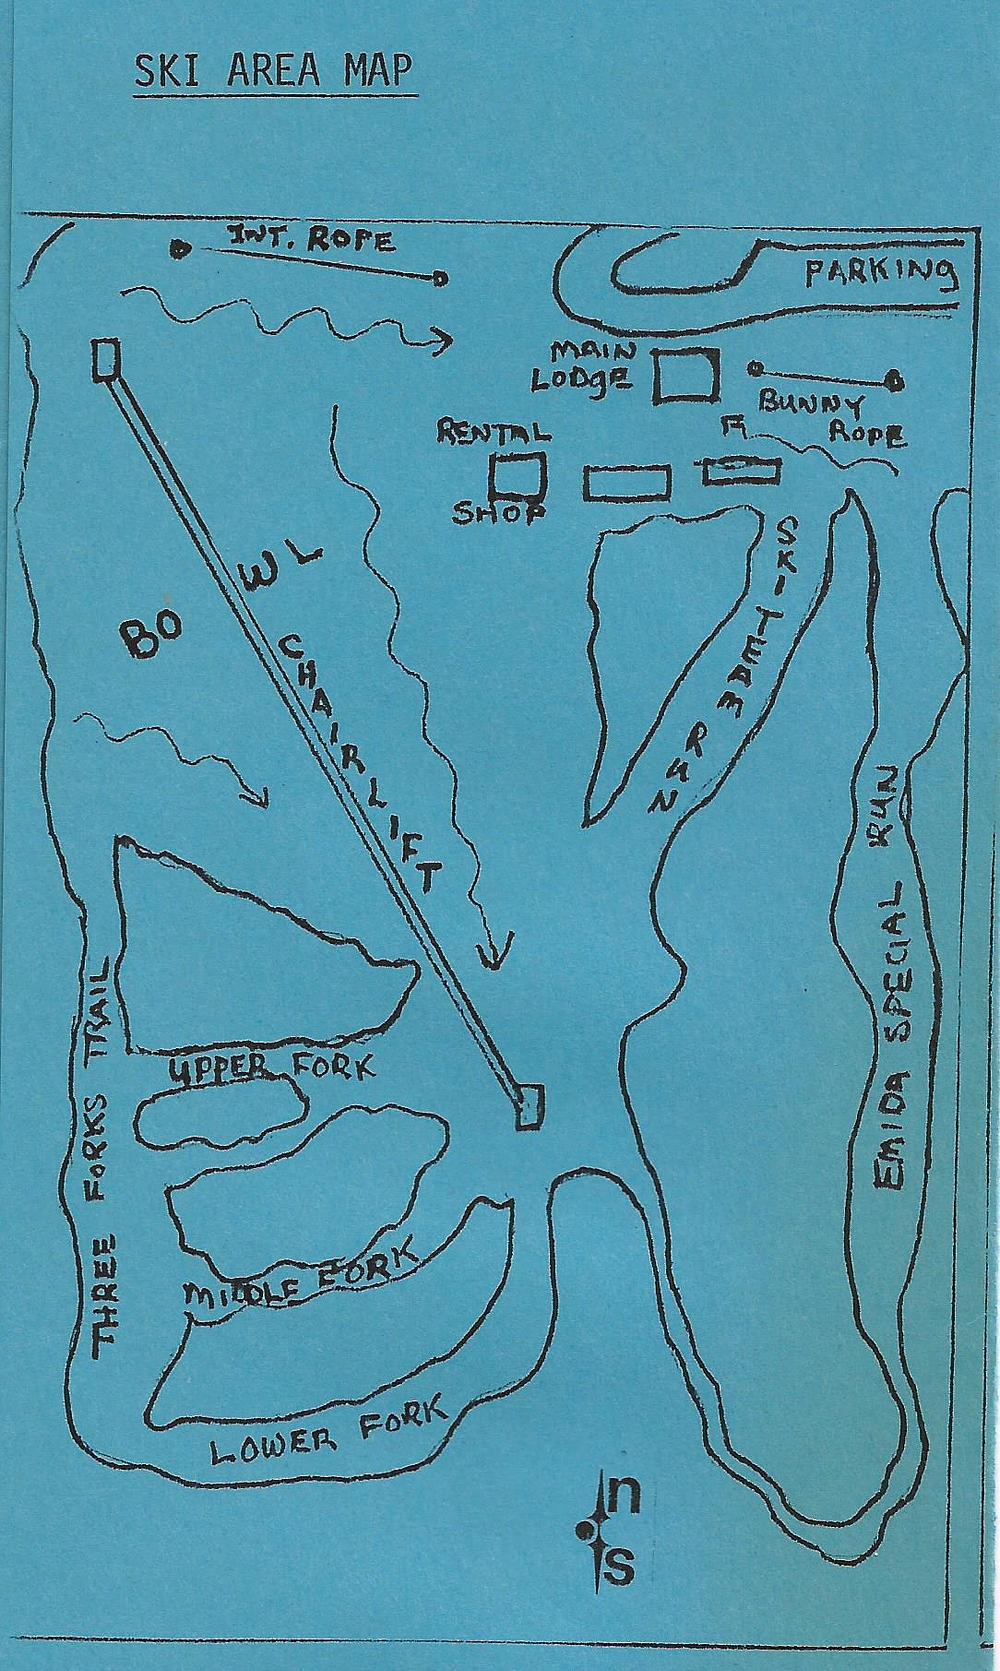 SKI AREA MAP
INT. ROPE
PARKING
MAIN
LODGE
BUNNY
ROPE
RENTAL
SHOP
SKI TEAM RUN
BOWL
CHAIRLIFT
EMIDA SPECIAL RUN
THREE FORKS TRAIL
UPPER FORK
MIDDLE FORK
LOWER FORK
n
s